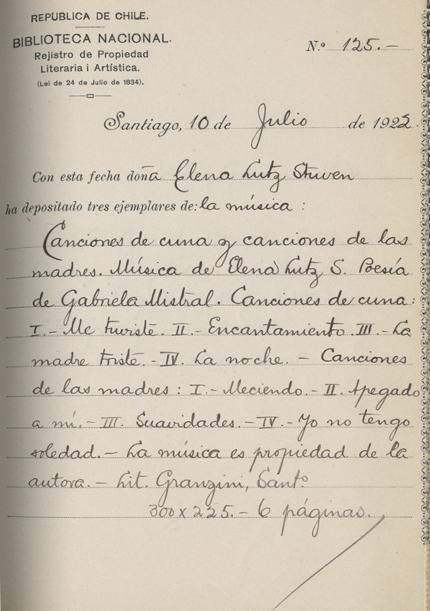 REPUBLICA DE CHILE.
BIBLIOTECA NACIONAL.
Rejistro de Propiedad
Literaria i Artística.
(Lei de 24 de Julio de 1834).
N.º 125.-
Santiago, 10 de Julio de 1922.
Con esta fecha doña Elena Lutz Stuven
ha depositado tres ejemplares de: la música :
Canciones de cuna y canciones de las
madres. Música de Elena Lutz S. Poesía
de Gabriela Mistral. Canciones de cuna:
I.- Me tuviste. II.- Encantamiento. III.- La
madre triste. - IV. La noche. - Canciones
de las madres : I.- Meciendo. - II. Apegado
a mí. - III. Suavidades. - IV.- Yo no tengo
soledad. - La música es propiedad de la
autora. - Lit. Granzini, Santº
300 x 225. - 6 páginas.